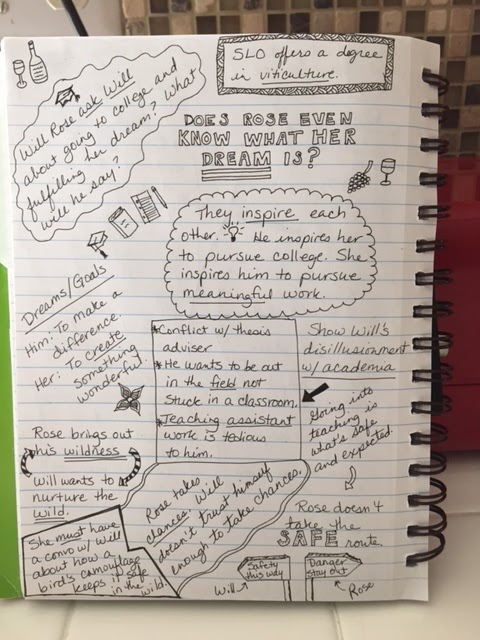 SLO offers a degree
in viticulture.
Will Rose ask Will
about going to college and
fulfilling her dream? What
will he say?
DOES ROSE EVEN
KNOW WHAT HER
DREAM IS?
They inspire each
other. He inspires her
to pursue college. She
inspires him to pursue
meaningful work.
Dreams/Goals
Him: To make a
difference.
Her: To create
something
wonderful.
*Conflict w/ thesis
adviser
*He wants to be out
in the field not
stuck in a classroom.
*Teaching assistant
work is tedious
to him.
Show Will's
disillusionment
w/ academia
Going into
teaching is
what's safe
and expected.
Rose doesn't
take the
SAFE route.
Rose brings out
his wildness
Will wants to
nurture the
wild.
Rose takes
chances. Will
doesn't trust himself
enough to take chances.
She must have
a convo w/ Will
about how a
bird's camouflage
keeps it safe
in the wild.
Safety
this way
Will
Danger
Stay out
Rose